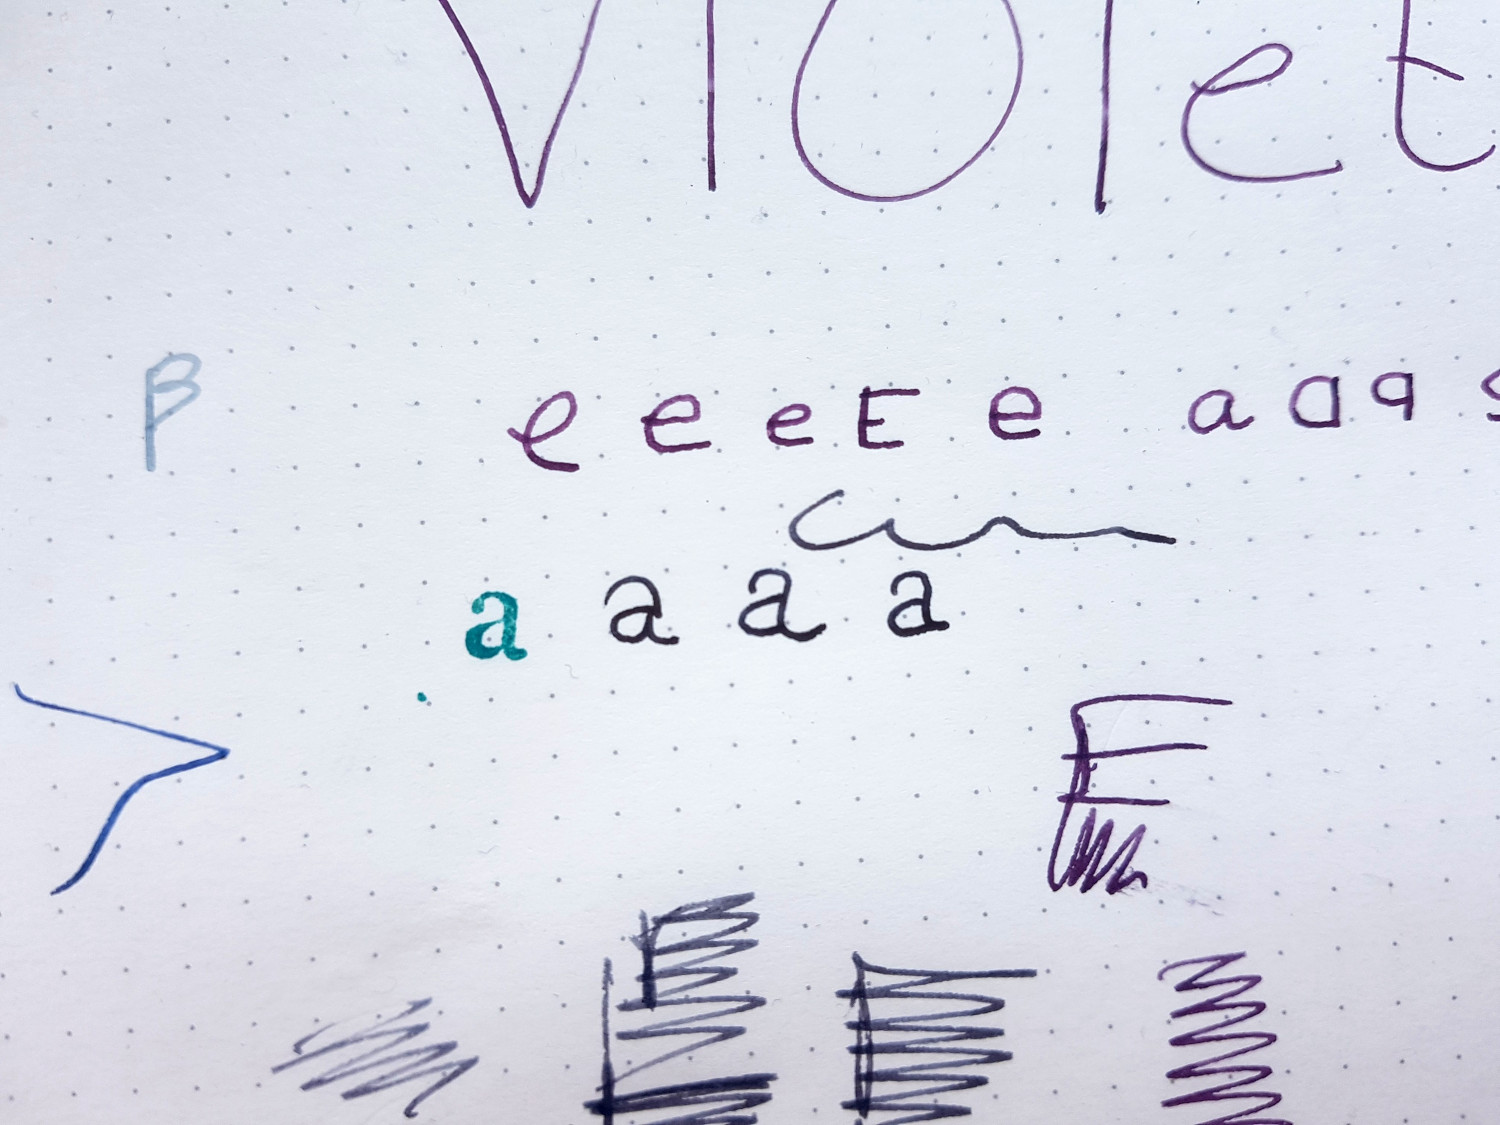 Violet
β e e e E e a a a
a a a a
E